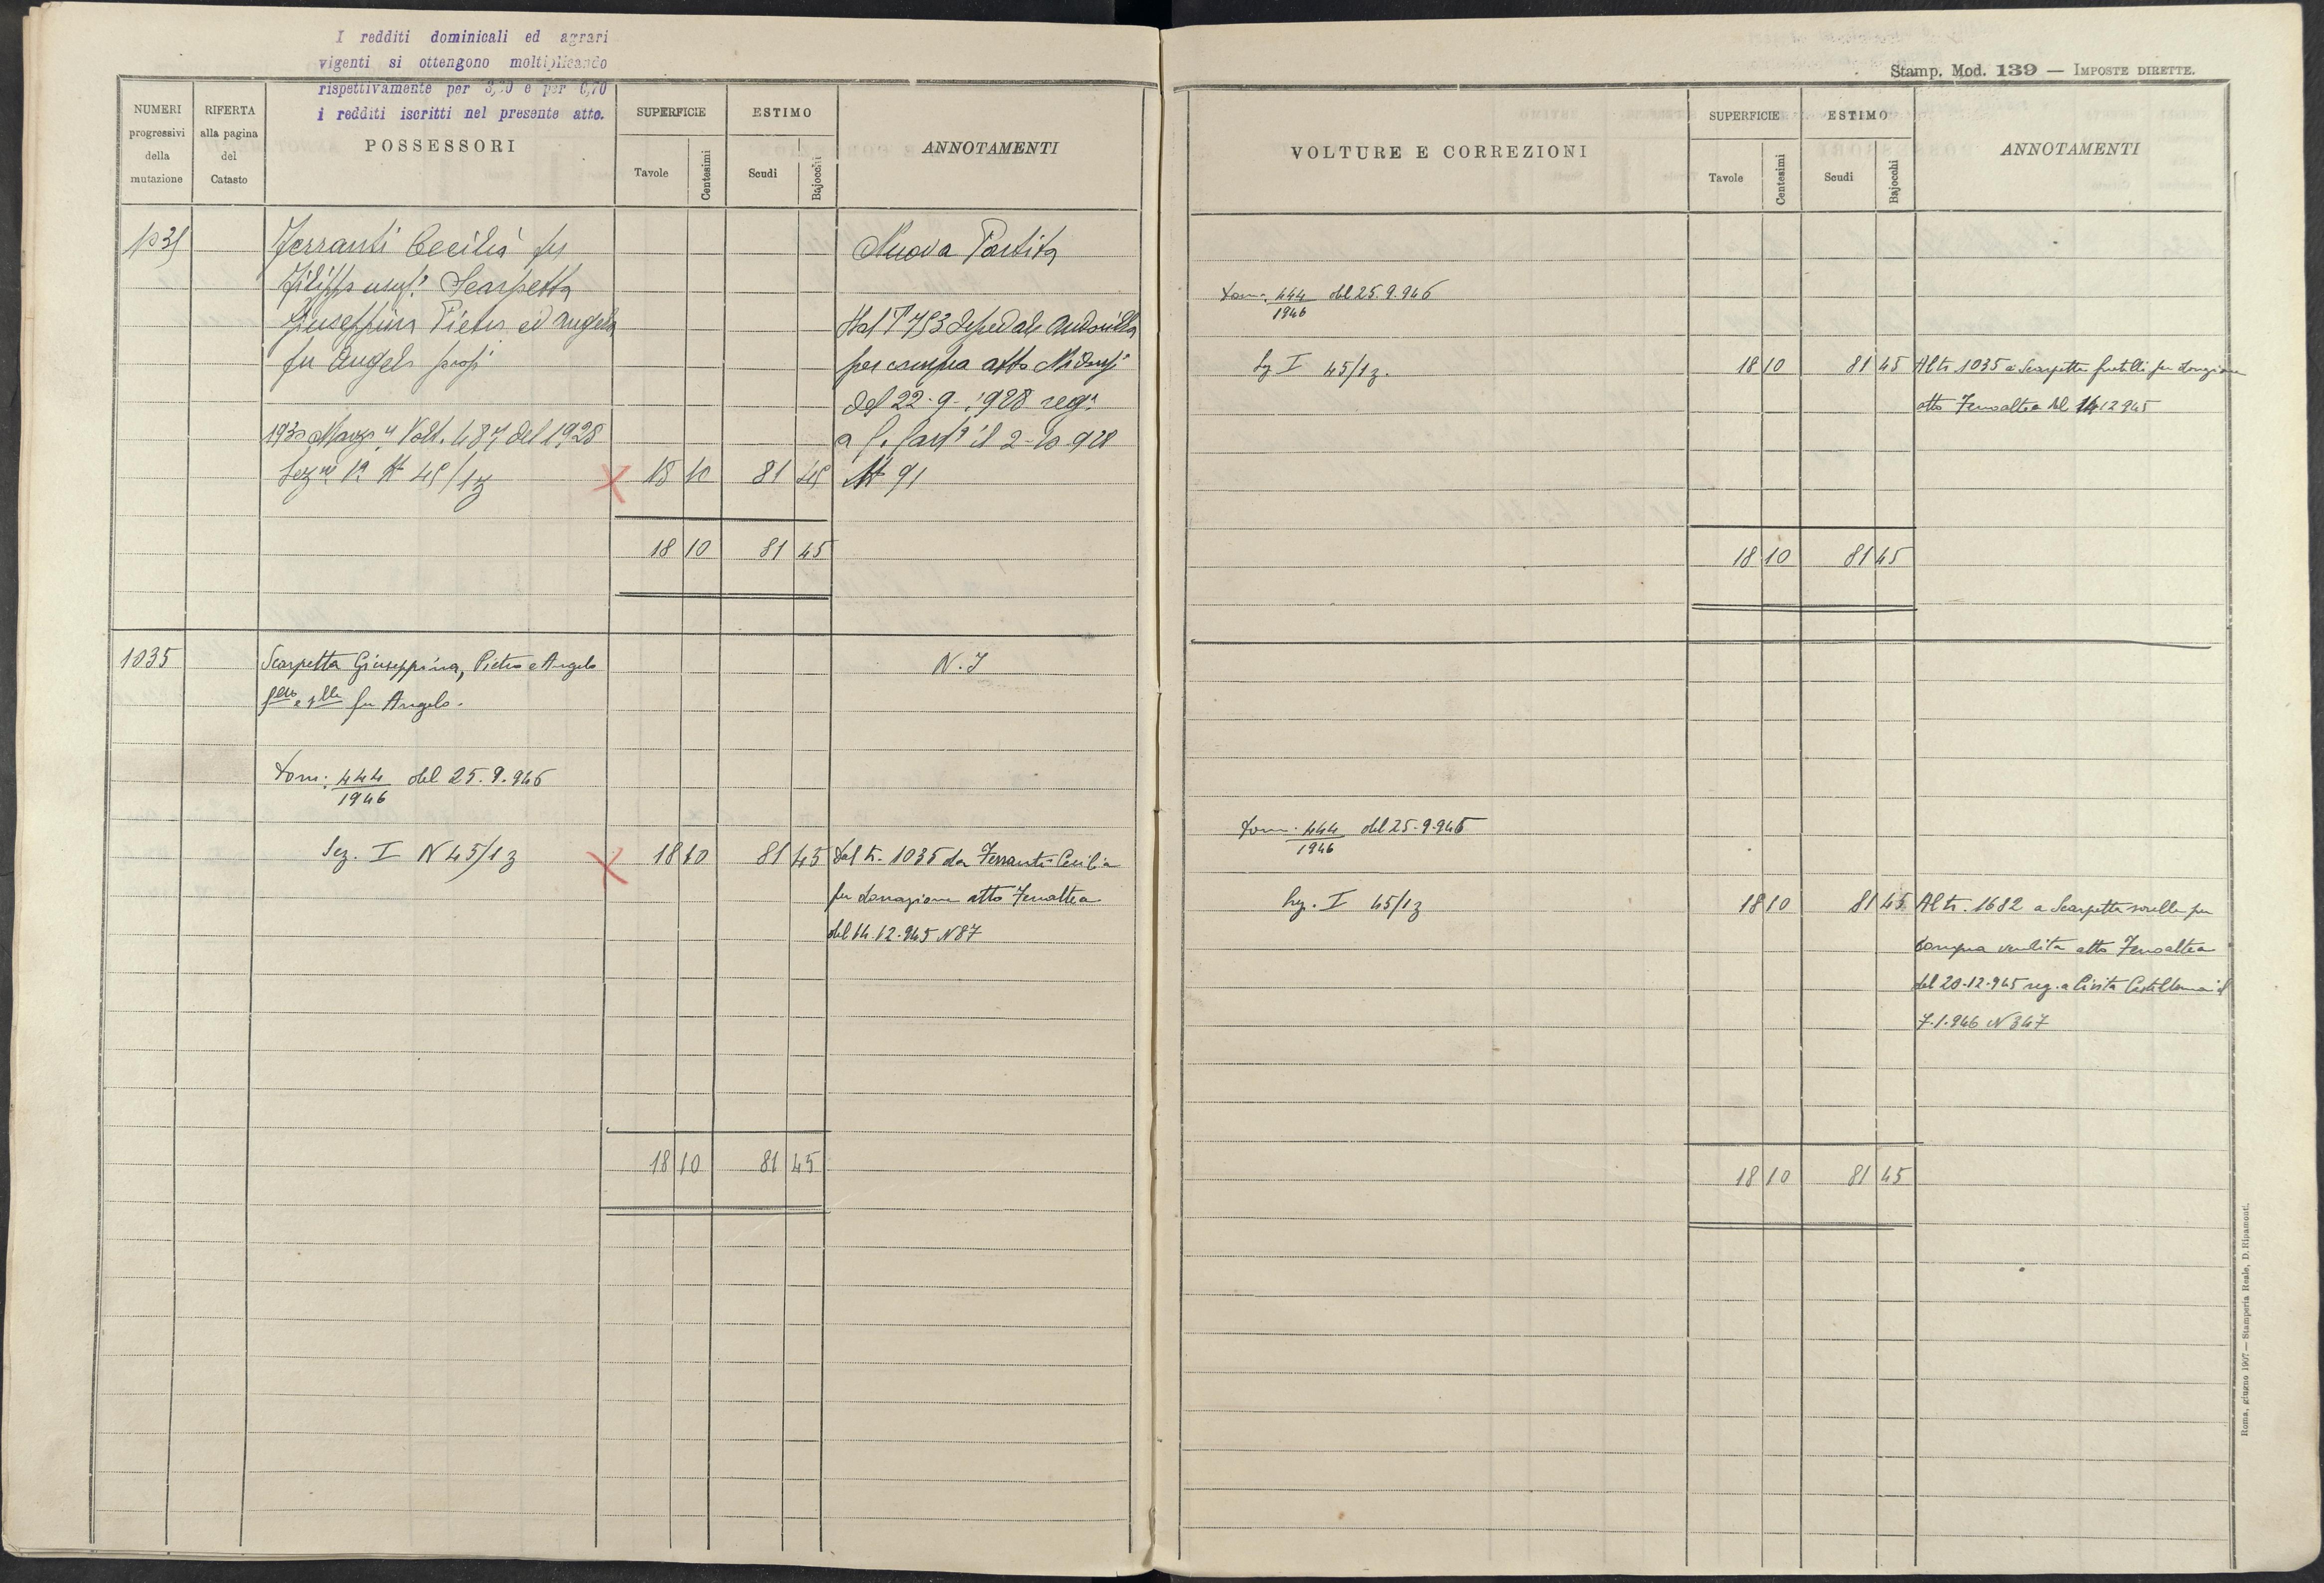 I redditi dominicali ed agrari
vigenti si ottengono moltiplicando
rispettivamente per 3,20 e per 0,70
i redditi iscritti nel presente atto.
NUMERI progressivi della mutazione
RIFERTA alla pagina del Catasto
POSSESSORI
SUPERFICIE
Tavole
Centesimi
ESTIMO
Scudi
Bajocchi
ANNOTAMENTI
Ferranti Cecilia fu
Filippo usuf. Scarpetta
Giuseppina Pietro ed Angelo
fu Angelo prop.
1930 Marzo 4 Volt. 487 del 1928
Sez.ne 1a N 45/1z
X 18 10 81 45
18 10 81 45
Nuova Partita
Dal T 753
per compra atto
del 22-9-1928 reg.
a il 2-10-928
N 91
1035
Scarpetta Giuseppina, Pietro e Angelo
fu Angelo.
Dom: 444/1946 del 25.9.946
Sez. I N 45/1z
X 18 10 81 45
N. I
Dal tr. 1035 da Ferranti Cecilia
per donazione atto Fenoaltea
del 14.12.945 N 87
18 10 81 45
Stamp. Mod. 139 — IMPOSTE DIRETTE.
VOLTURE E CORREZIONI
SUPERFICIE
Tavole
Centesimi
ESTIMO
Scudi
Bajocchi
ANNOTAMENTI
Dom: 444/1946 del 25.9.946
Sez I 45/1z.
18 10 81 45
Al tr. 1035 a Scarpetta fratelli per donazione
atto Fenoaltea del 14 12 945
18 10 81 45
Dom: 444/1946 del 25-9-946
Sez. I 45/1z
18 10 81 45
Al tr. 1682 a Scarpetta sorelle per
compra vendita atto Fenoaltea
del 20-12-945 reg. a Civita Castellana il
7.1.946 N 347
18 10 81 45
Roma, giugno 1907 — Stamperia Reale, D. Ripamonti.